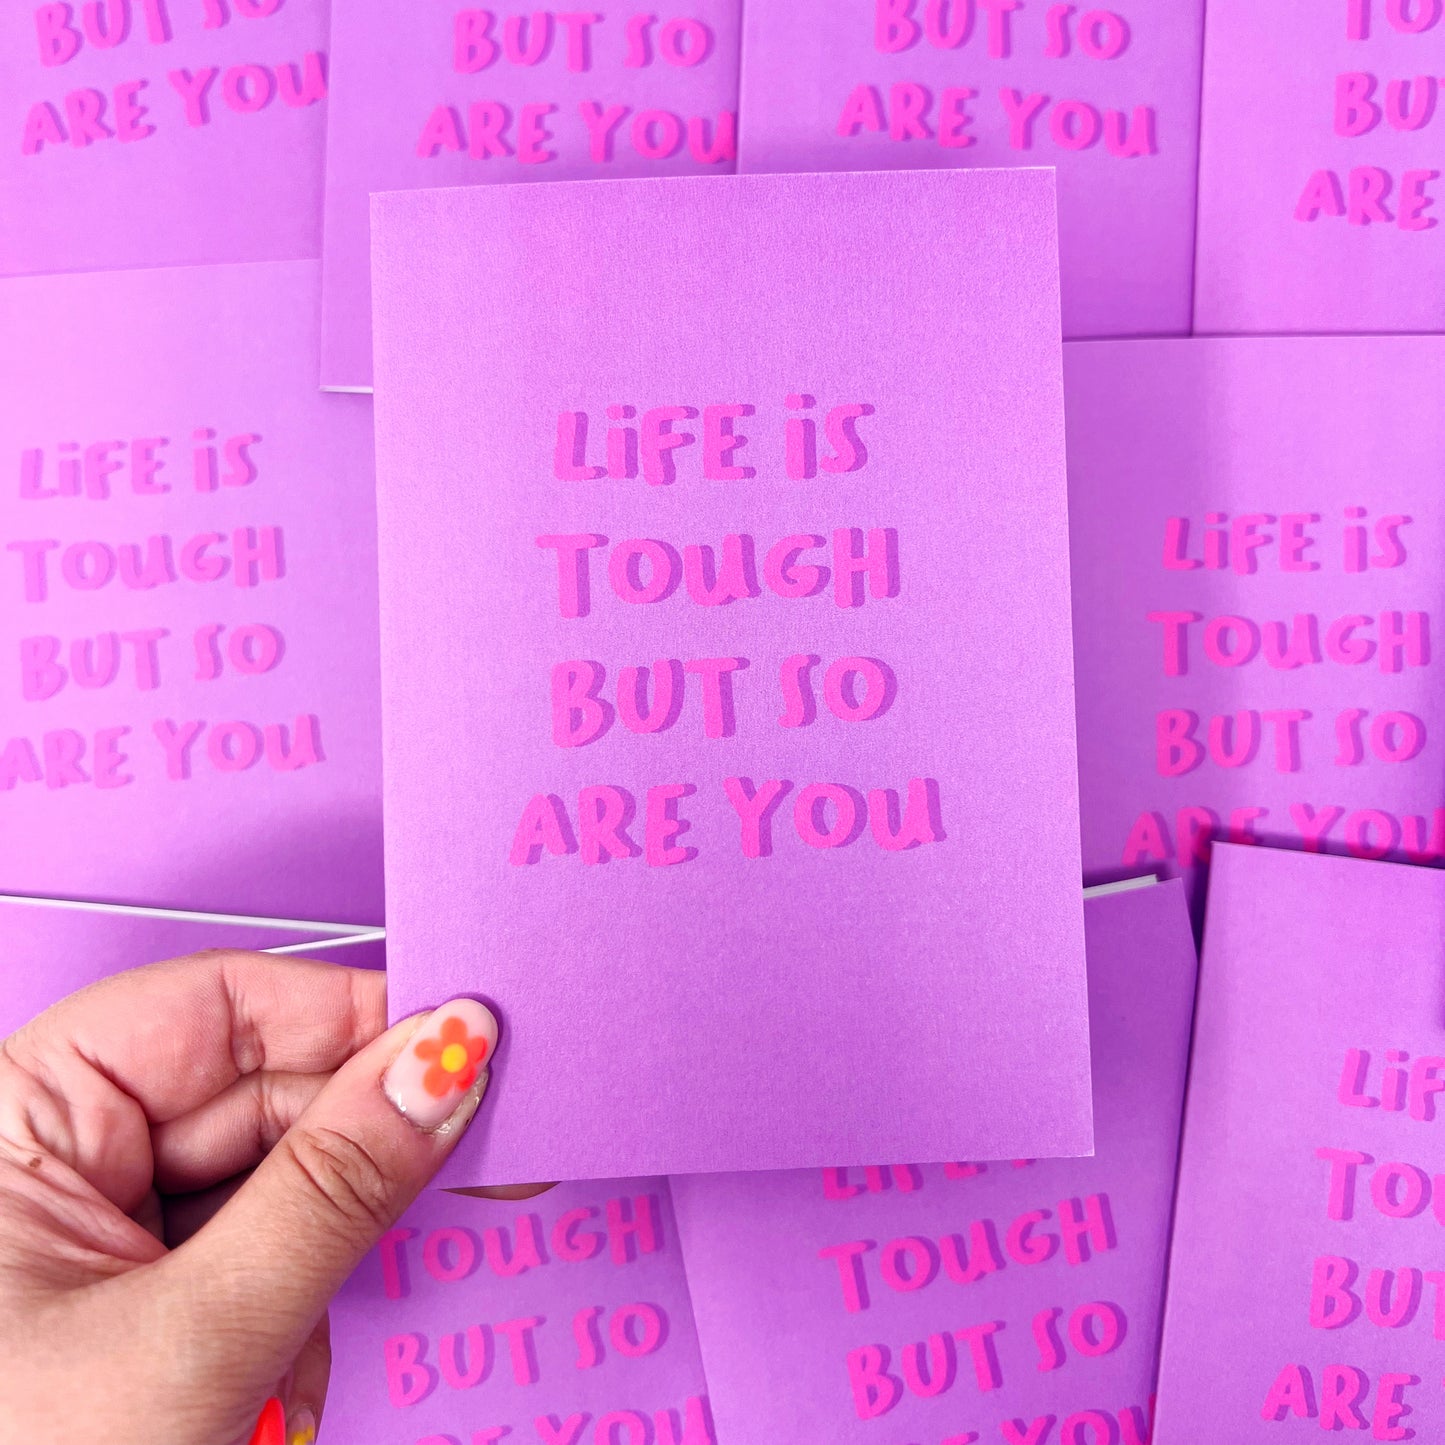 BUT SO
ARE YOU
BUT SO
ARE YOU
BUT SO
ARE YOU
TO
BU
ARE
LiFE iS
TOUGH
BUT SO
ARE YOU
LiFE iS
TOUGH
BUT SO
ARE YOU
LiFE iS
TOUGH
BUT SO
ARE YOU
TOUGH
BUT SO
ARE YOU
TOUGH
BUT SO
ARE YOU
LiF
TO
BUT
ARE